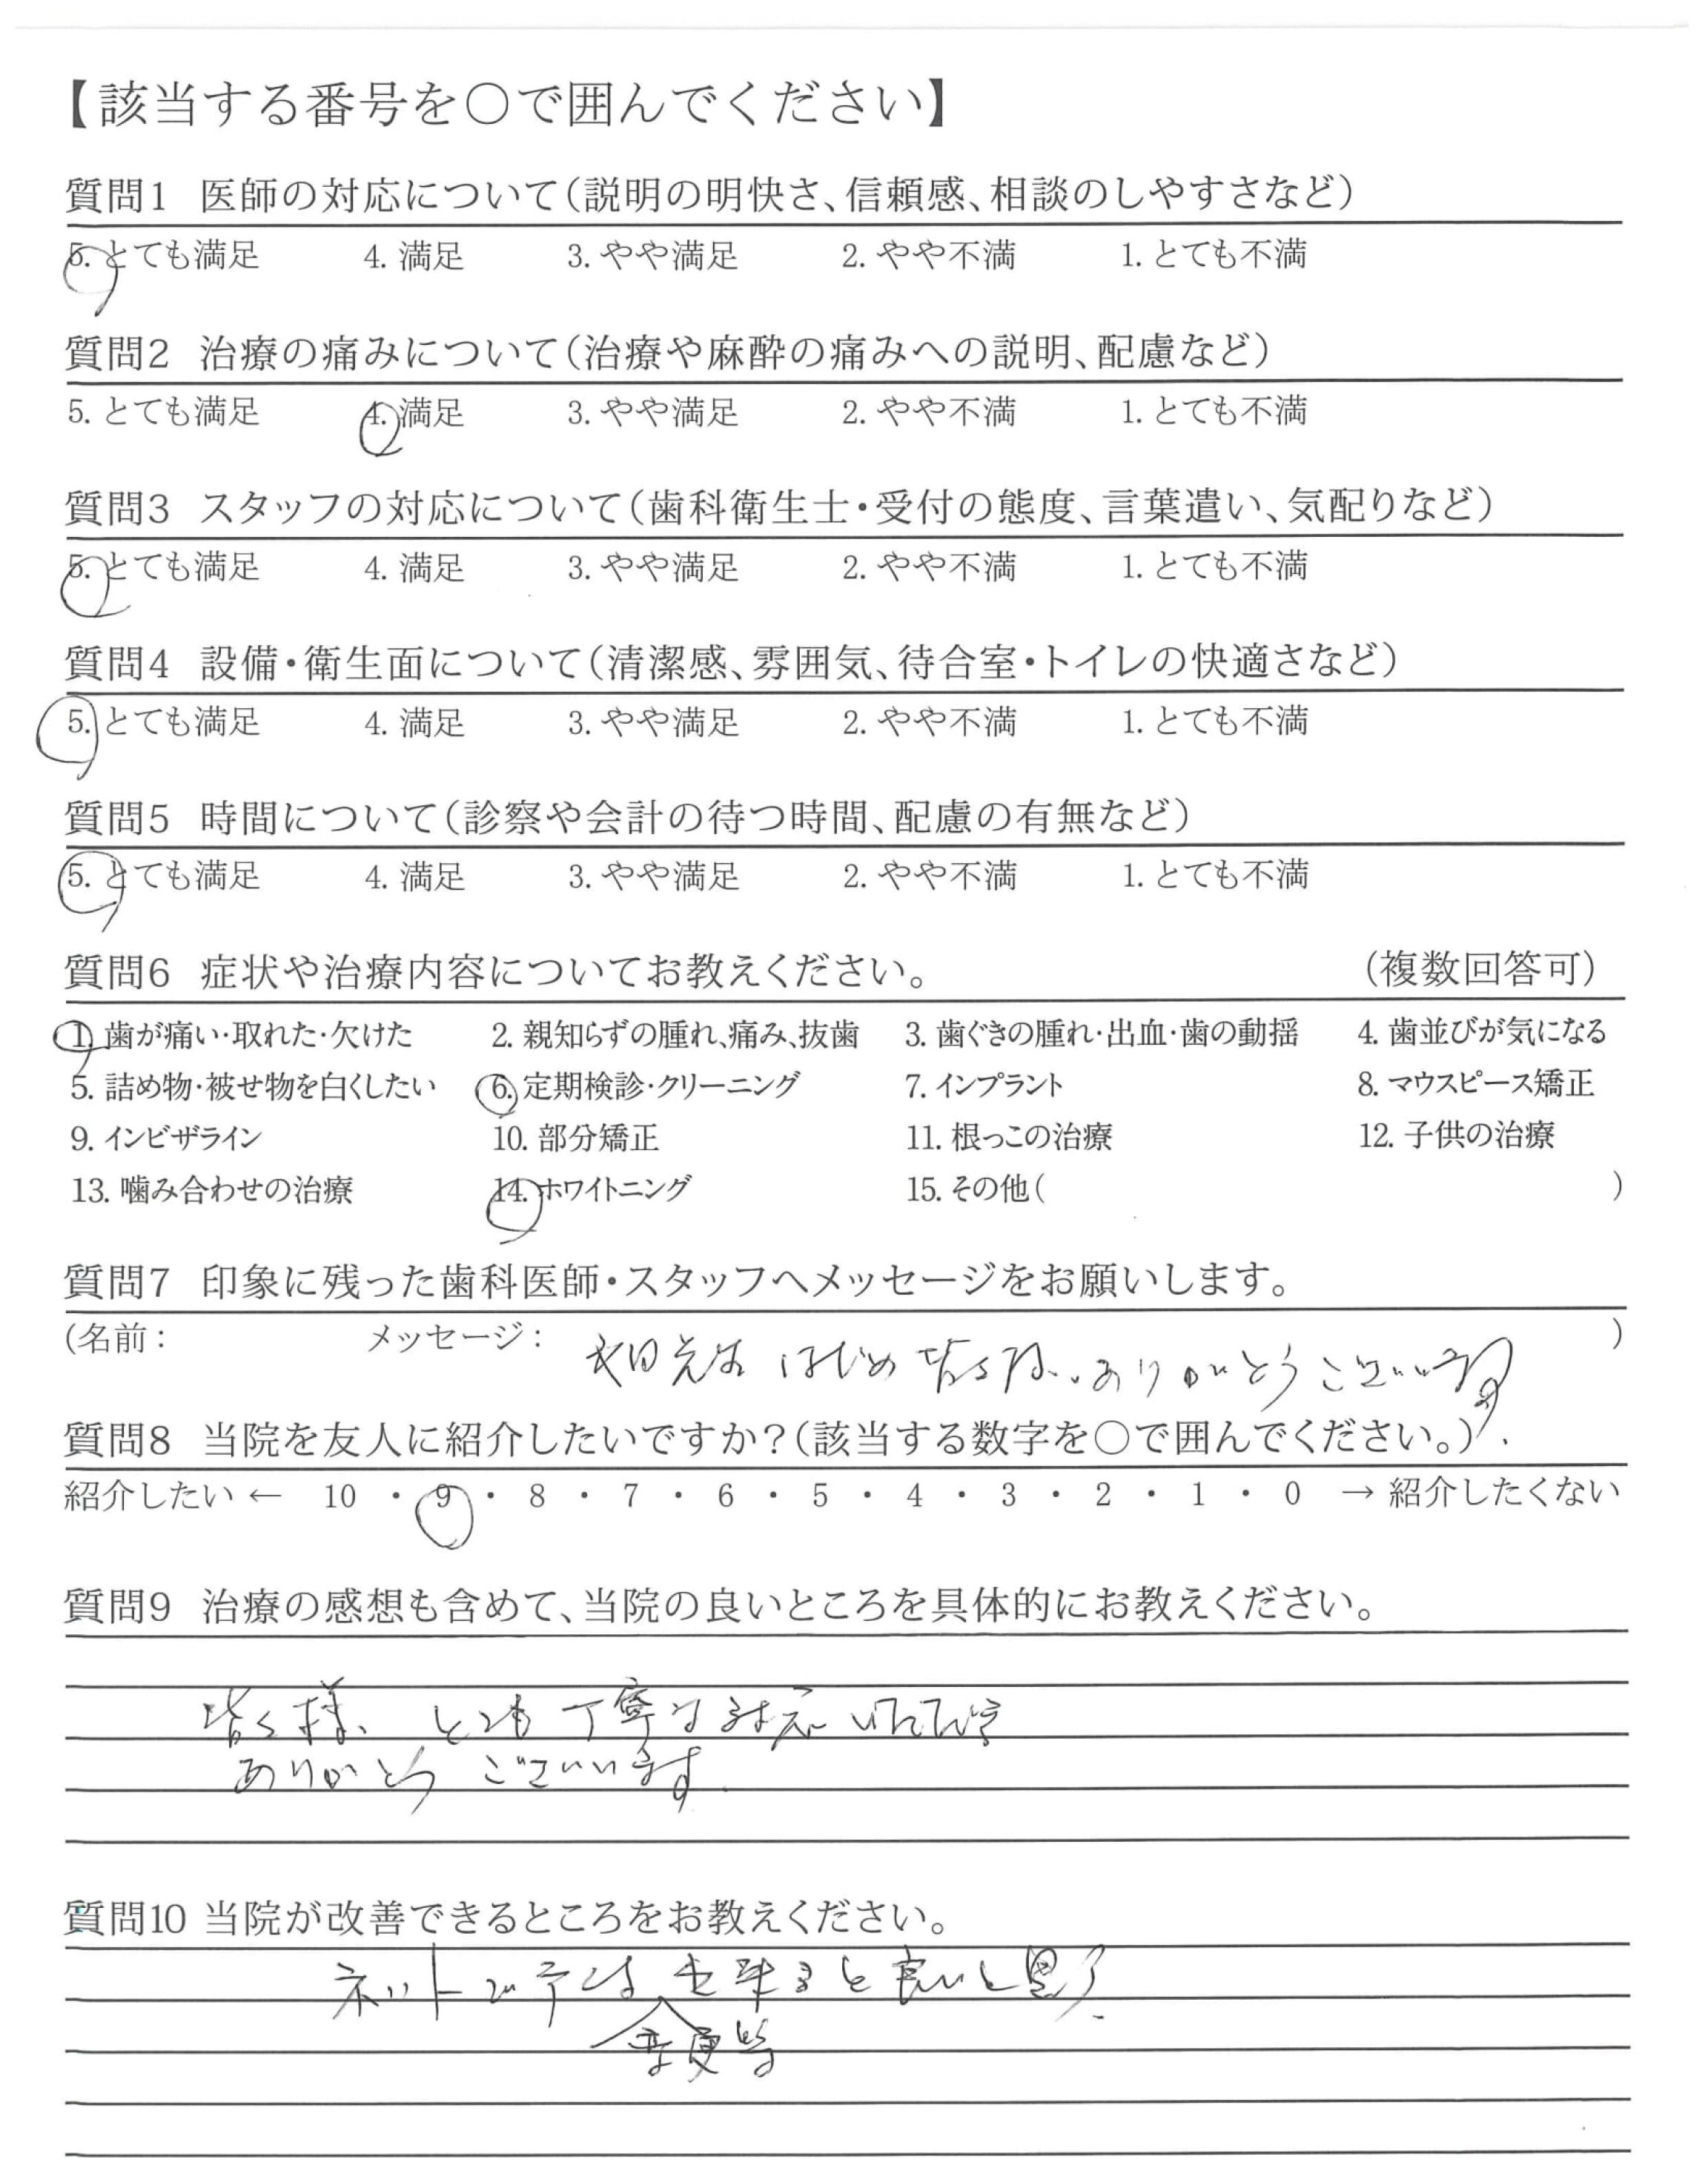 【該当する番号を○で囲んでください】
質問1 医師の対応について(説明の明快さ、信頼感、相談のしやすさなど)
5. とても満足 4. 満足 3. やや満足 2. やや不満 1. とても不満
質問2 治療の痛みについて(治療や麻酔の痛みへの説明、配慮など)
5. とても満足 4. 満足 3. やや満足 2. やや不満 1. とても不満
質問3 スタッフの対応について(歯科衛生士・受付の態度、言葉遣い、気配りなど)
5. とても満足 4. 満足 3. やや満足 2. やや不満 1. とても不満
質問4 設備・衛生面について(清潔感、雰囲気、待合室・トイレの快適さなど)
5. とても満足 4. 満足 3. やや満足 2. やや不満 1. とても不満
質問5 時間について(診察や会計の待つ時間、配慮の有無など)
5. とても満足 4. 満足 3. やや満足 2. やや不満 1. とても不満
質問6 症状や治療内容についてお教えください。 (複数回答可)
1. 歯が痛い・取れた・欠けた 2. 親知らずの腫れ、痛み、抜歯 3. 歯ぐきの腫れ・出血・歯の動揺 4. 歯並びが気になる
5. 詰め物・被せ物を白くしたい 6. 定期検診・クリーニング 7. インプラント 8. マウスピース矯正
9. インビザライン 10. 部分矯正 11. 根っこの治療 12. 子供の治療
13. 噛み合わせの治療 14. ホワイトニング 15. その他( )
質問7 印象に残った歯科医師・スタッフへメッセージをお願いします。
(名前: メッセージ: 先生はじめ皆さま、ありがとうございます )
質問8 当院を友人に紹介したいですか?(該当する数字を○で囲んでください。)
紹介したい ← 10 ・ 9 ・ 8 ・ 7 ・ 6 ・ 5 ・ 4 ・ 3 ・ 2 ・ 1 ・ 0 → 紹介したくない
質問9 治療の感想も含めて、当院の良いところを具体的にお教えください。
皆様、とても丁寧な対応いただき
ありがとうございます
質問10 当院が改善できるところをお教えください。
ネットで予約出来ると良いと思う
変更等